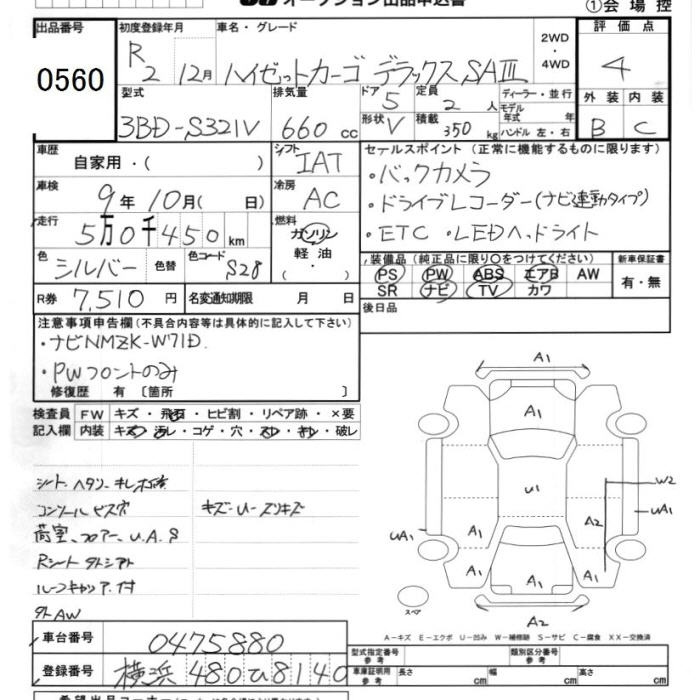 オークション出品申込書
①会場控
出品番号
0560
初度登録年月
R2 12月
車名・グレード
ハイゼットカーゴ デラックスSAⅢ
2WD・4WD
評価点
4
外装 内装
B C
型式
3BD-S321V
排気量
660 cc
ドア 5
形状 V
定員 2 人
積載 350 kg
ディーラー・並行
モデル年式 年
ハンドル 左・右
車歴
自家用・( )
シフト
IAT
車検
9年10月( 日)
冷房
AC
走行
5万0千450 km
燃料
ガソリン
軽油
( ・ )
色
シルバー
色替
色コード
S28
R券 7,510 円
名変通知期限 月 日
セールスポイント(正常に機能するものに限ります)
・バックカメラ
・ドライブレコーダー(ナビ連動タイプ)
・ETC ・LEDヘッドライト
装備品(純正品に限り○をつけてください)
PS PW ABS エアB AW
SR ナビ TV カワ
新車保証書
有・無
後日品
注意事項申告欄(不具合内容等は具体的に記入して下さい)
・ナビNMZK-W71D
・PWフロントのみ
修復歴 有 〔箇所 〕
検査員記入欄
FW キズ・飛石・ヒビ割・リペア跡・×要
内装 キズ・汚レ・コゲ・穴・スレ・キレ・破レ
シート ヘタリ・キレ
コンソール ビス穴 キズ・U・スリキズ
荷室、フロアー、U.A.S
Rシート
ルーフキャリア付
社外AW
A1
A1
U1
W2
A2
UA1
UA1
A1
A1
A1
A1
A2
スペア
A-キズ E-エクボ U-凹み W-補修跡 S-サビ C-腐食 XX-交換済
車台番号
0475880
登録番号
横浜 480 ひ 8140
型式指定番号
参考
類別区分番号
参考
車庫証明用
参考
長さ cm
幅 cm
高さ cm